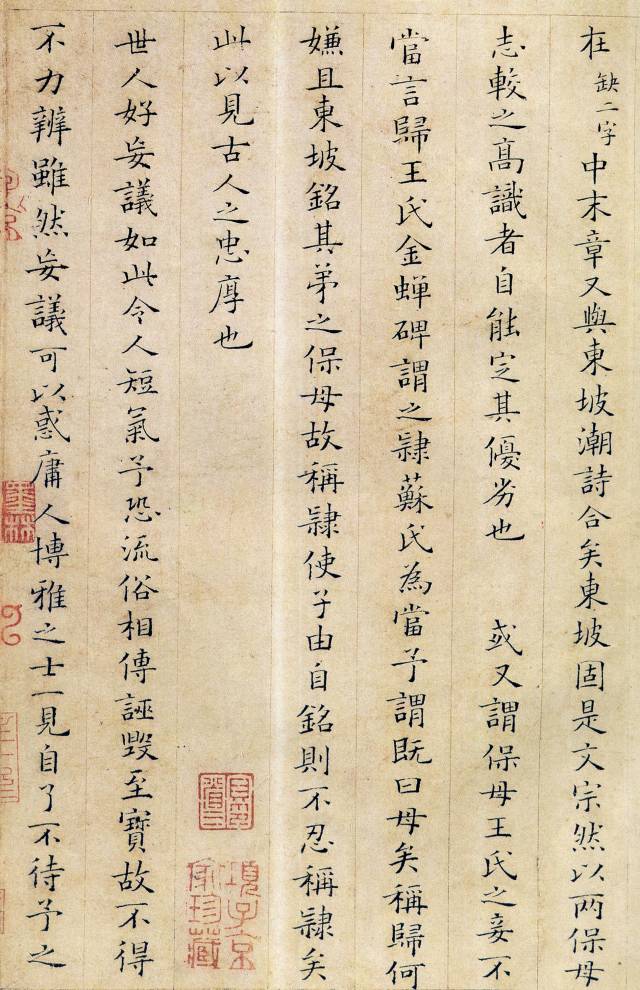 在缺二字中末章又與東坡潮詩合矣東坡固是文宗然以两保母
志較之高識者自能定其優劣也 或又謂保母王氏之妾不
當言歸王氏金蟬碑謂之隸蘇氏為當予謂既曰母矣稱歸何
嫌且東坡銘其弟之保母故稱隸使子由自銘則不忍稱隸矣
此以見古人之忠厚也
世人好妄議如此令人短氣予恐流俗相傳誣毀至寶故不得
不力辨雖然妄議可以惑庸人博雅之士一見自了不待予之
項子京家珍藏